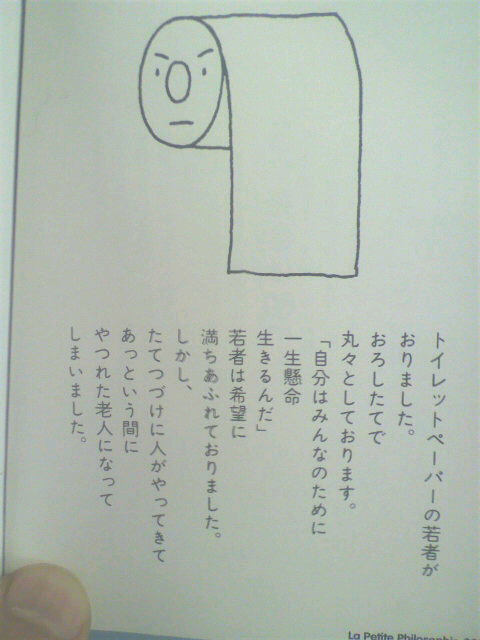 トイレットペーパーの若者が
おりました。
おろしたてで
丸々としております。
「自分はみんなのために
一生懸命
生きるんだ」
若者は希望に
満ちあふれておりました。
しかし、
たてつづけに人がやってきて
あっという間に
やつれた老人になって
しまいました。
La Petite Philosophie